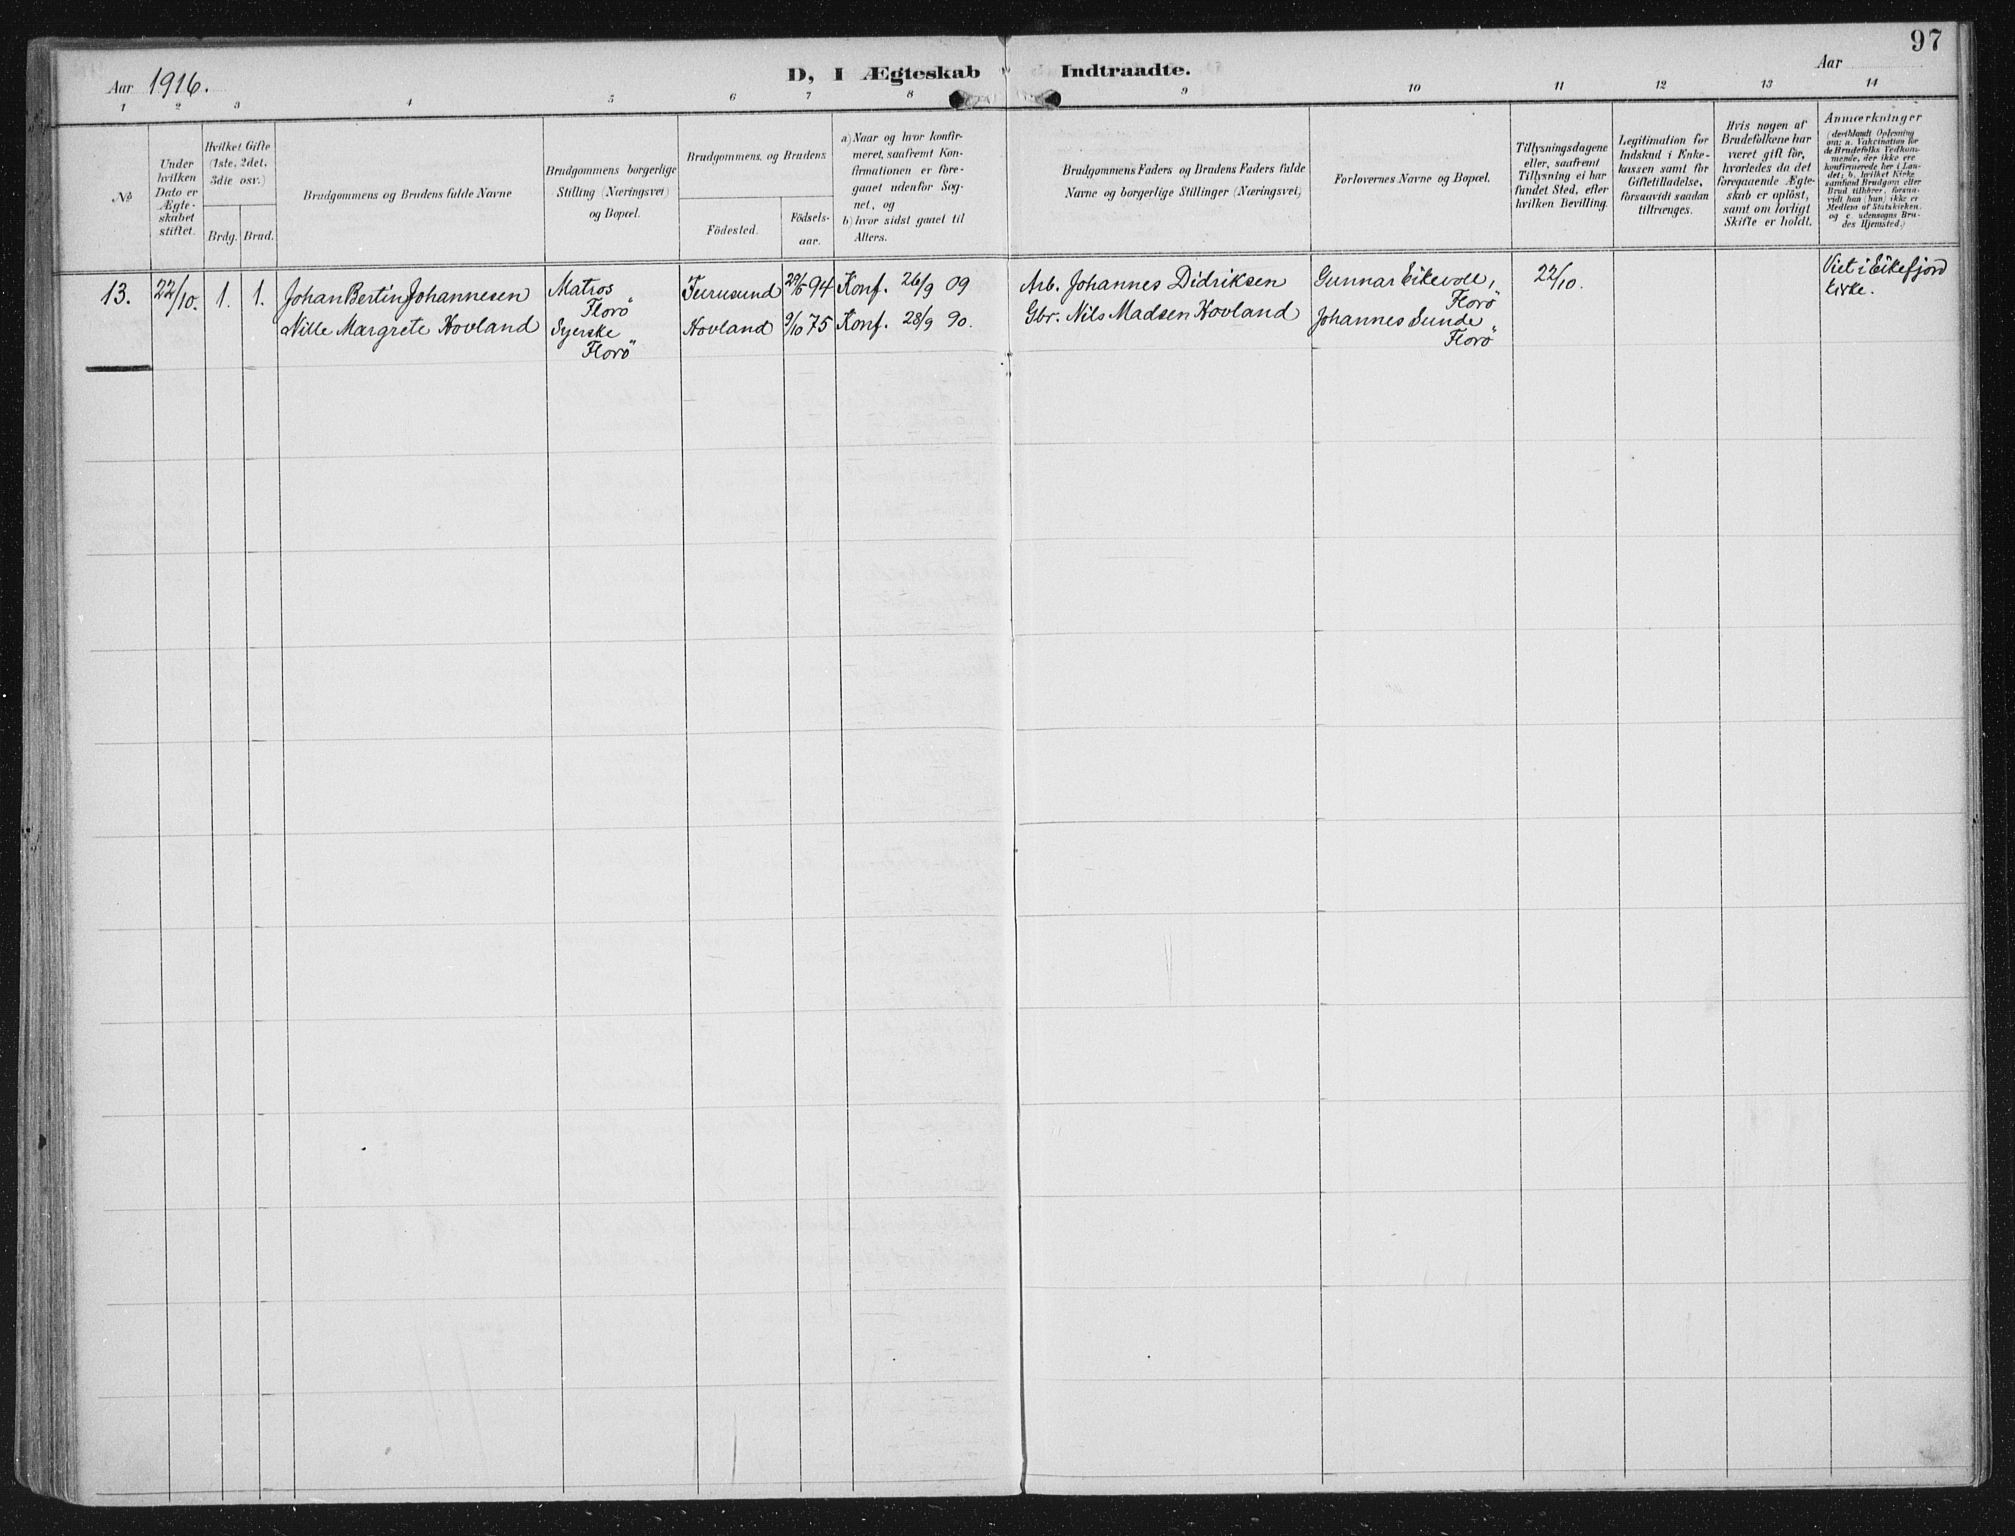 97
D, I Ægteskab Indtraadte.
Aar 1916.
Aar
1 2 3 4 5 6 7 8 9 10 11 12 13 14
No
Under
hvilken
Dato er
Ægte-
skabet
stiftet.
Hvilket Gifte
(1ste, 2det,
3die osv.)
Brdg. Brud.
Brudgommens og Brudens fulde Navne
Brudgommens borgerlige
Stilling (Næringsvei)
og Bopæl.
Brudgommens og Brudens
Födested.
Födsels-
aar.
a) Naar og hvor konfir-
meret, saafremt Kon-
firmationen er fore-
gaaet udenfor Sog-
net, og
b) hvor sidst gaaet til
Alters.
Brudgommens Faders og Brudens Faders fulde
Navne og borgerlige Stillinger (Næringsvei)
Forlovernes Navne og Bopæl.
Tillysningsdagene
eller, saafremt
Tillysning ei har
fundet Sted, efter
hvilken Bevilling.
Legitimation for
Indskud i Enke-
kassen samt for
Giftetilladelse,
forsaavidt saadan
tiltrænges.
Hvis nogen af
Brudefolkene har
været gift för,
hvorledes da det
foregaaende Ægte-
skab er oplöst,
samt om lovligt
Skifte er holdt.
Anmærkninger
(deriblandt Oplysning
om: a. Vakcination for
de Brudefolks Vedkom-
mende, der ikke ere
konfirmerede her i Lan-
det; b. hvilket Kirke-
samfund Brudgom eller
Brud tilhörer, forsaa-
vidt han (hun) ikke er
Medlem af Statskirken,
og c. udensogns Bru-
des Hjemsted.)
13. 22/10. 1. 1. Johan Bertin Johannesen Matros Florö 94 Konf. 26/9 09 Arb. Johannes Didriksen Gunnar Eikevoll, Florö 22/10. Viet i Eikefjord kirke.
Nille Margrete Hovland Syerske Florö Hovland 9/10 75 Konf. 28/9 90. Gbr. Nils Madsen Hovland Johannes Sunde Florö